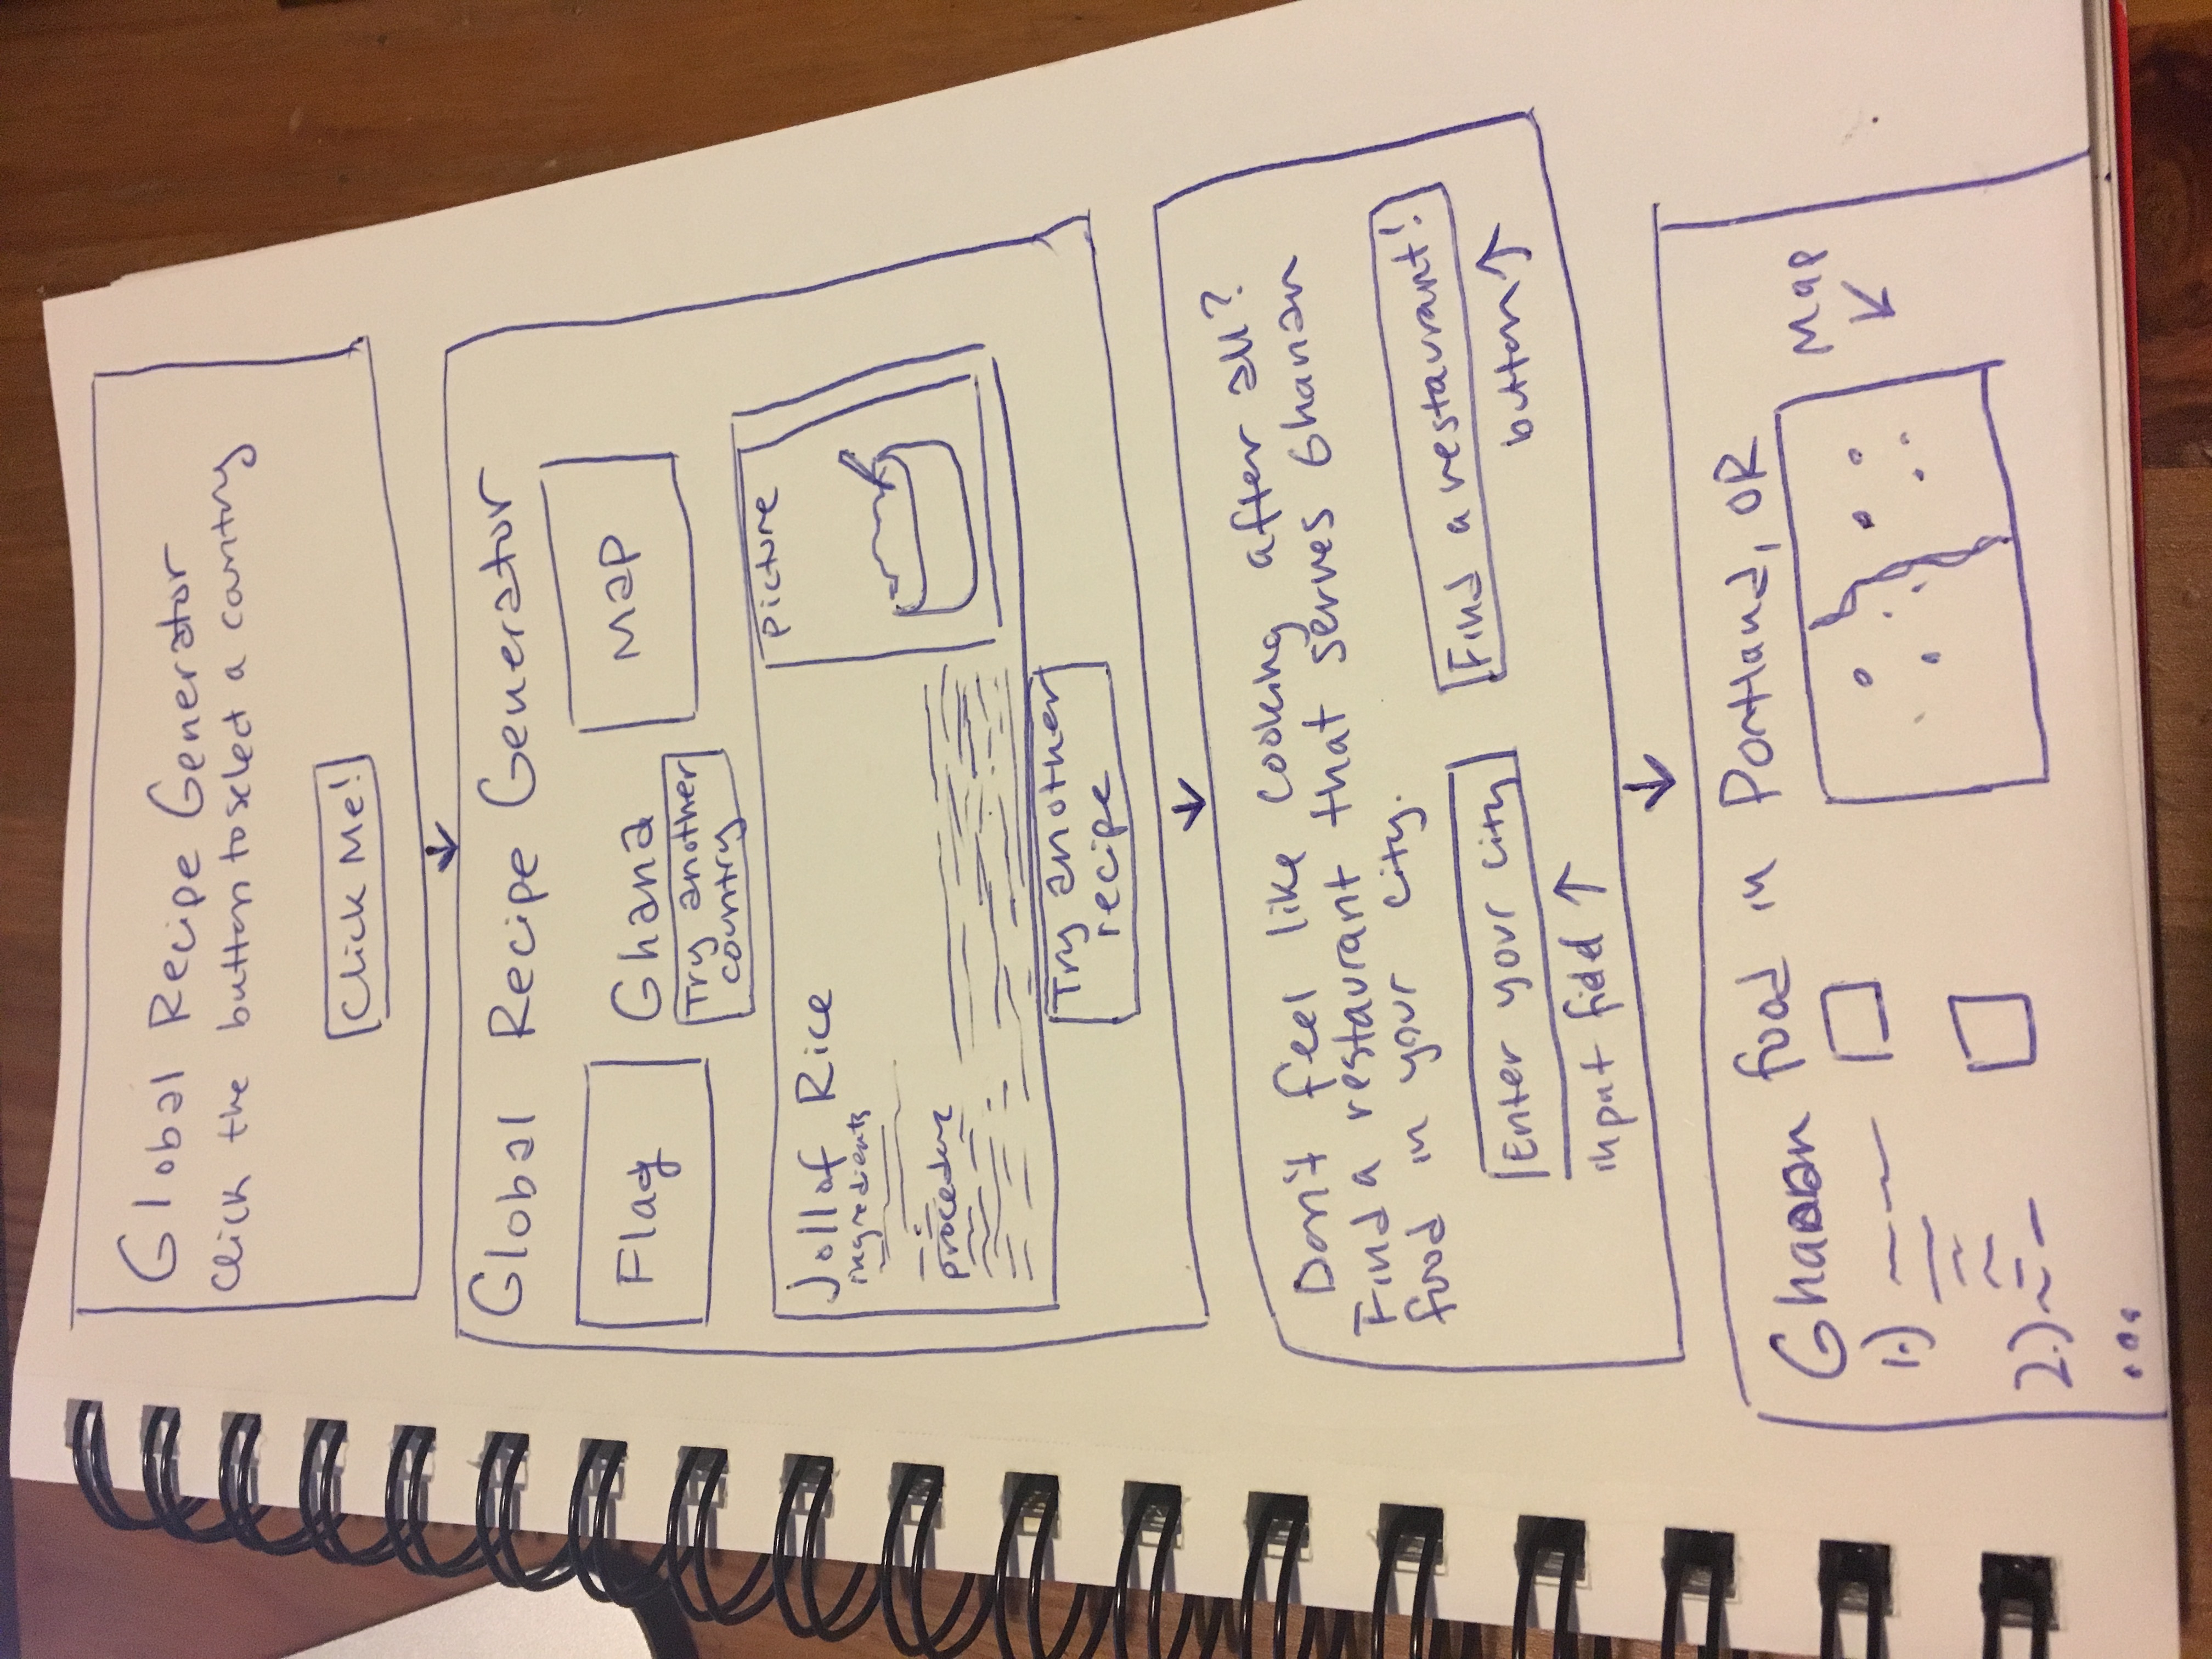 Global Recipe Generator
Click the button to select a country
Click Me!
Global Recipe Generator
Flag
Ghana
Map
Try another
country
Jollof Rice
picture
ingredients
procedure
Try another
recipe
Don't feel like cooking after all?
Find a restaurant that serves Ghanan
food in your city.
Enter your city
Find a restaurant!
input field ↑
button ↑
food in Portland, OR
Map
1.)
2.)
...